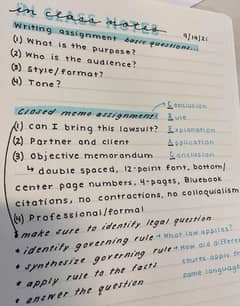 in class notes
9/14/21
Writing assignment basic questions...
(1) What is the purpose?
(2) Who is the audience?
(3) Style/format?
(4) Tone?
Closed memo assignment
Conclusion
Rule
Explanation
Application
Conclusion
(1) can I bring this lawsuit?
(2) Partner and client
(3) Objective memorandum
↳ double spaced, 12-point font, bottom/
center page numbers, 4-pages, Bluebook
citations, no contractions, no colloquialism
(4) Professional/formal
• make sure to identify legal question
• identify governing rule → What law applies?
• synthesize governing rule → How did differe
courts apply
same language
• apply rule to the facts
• answer the question